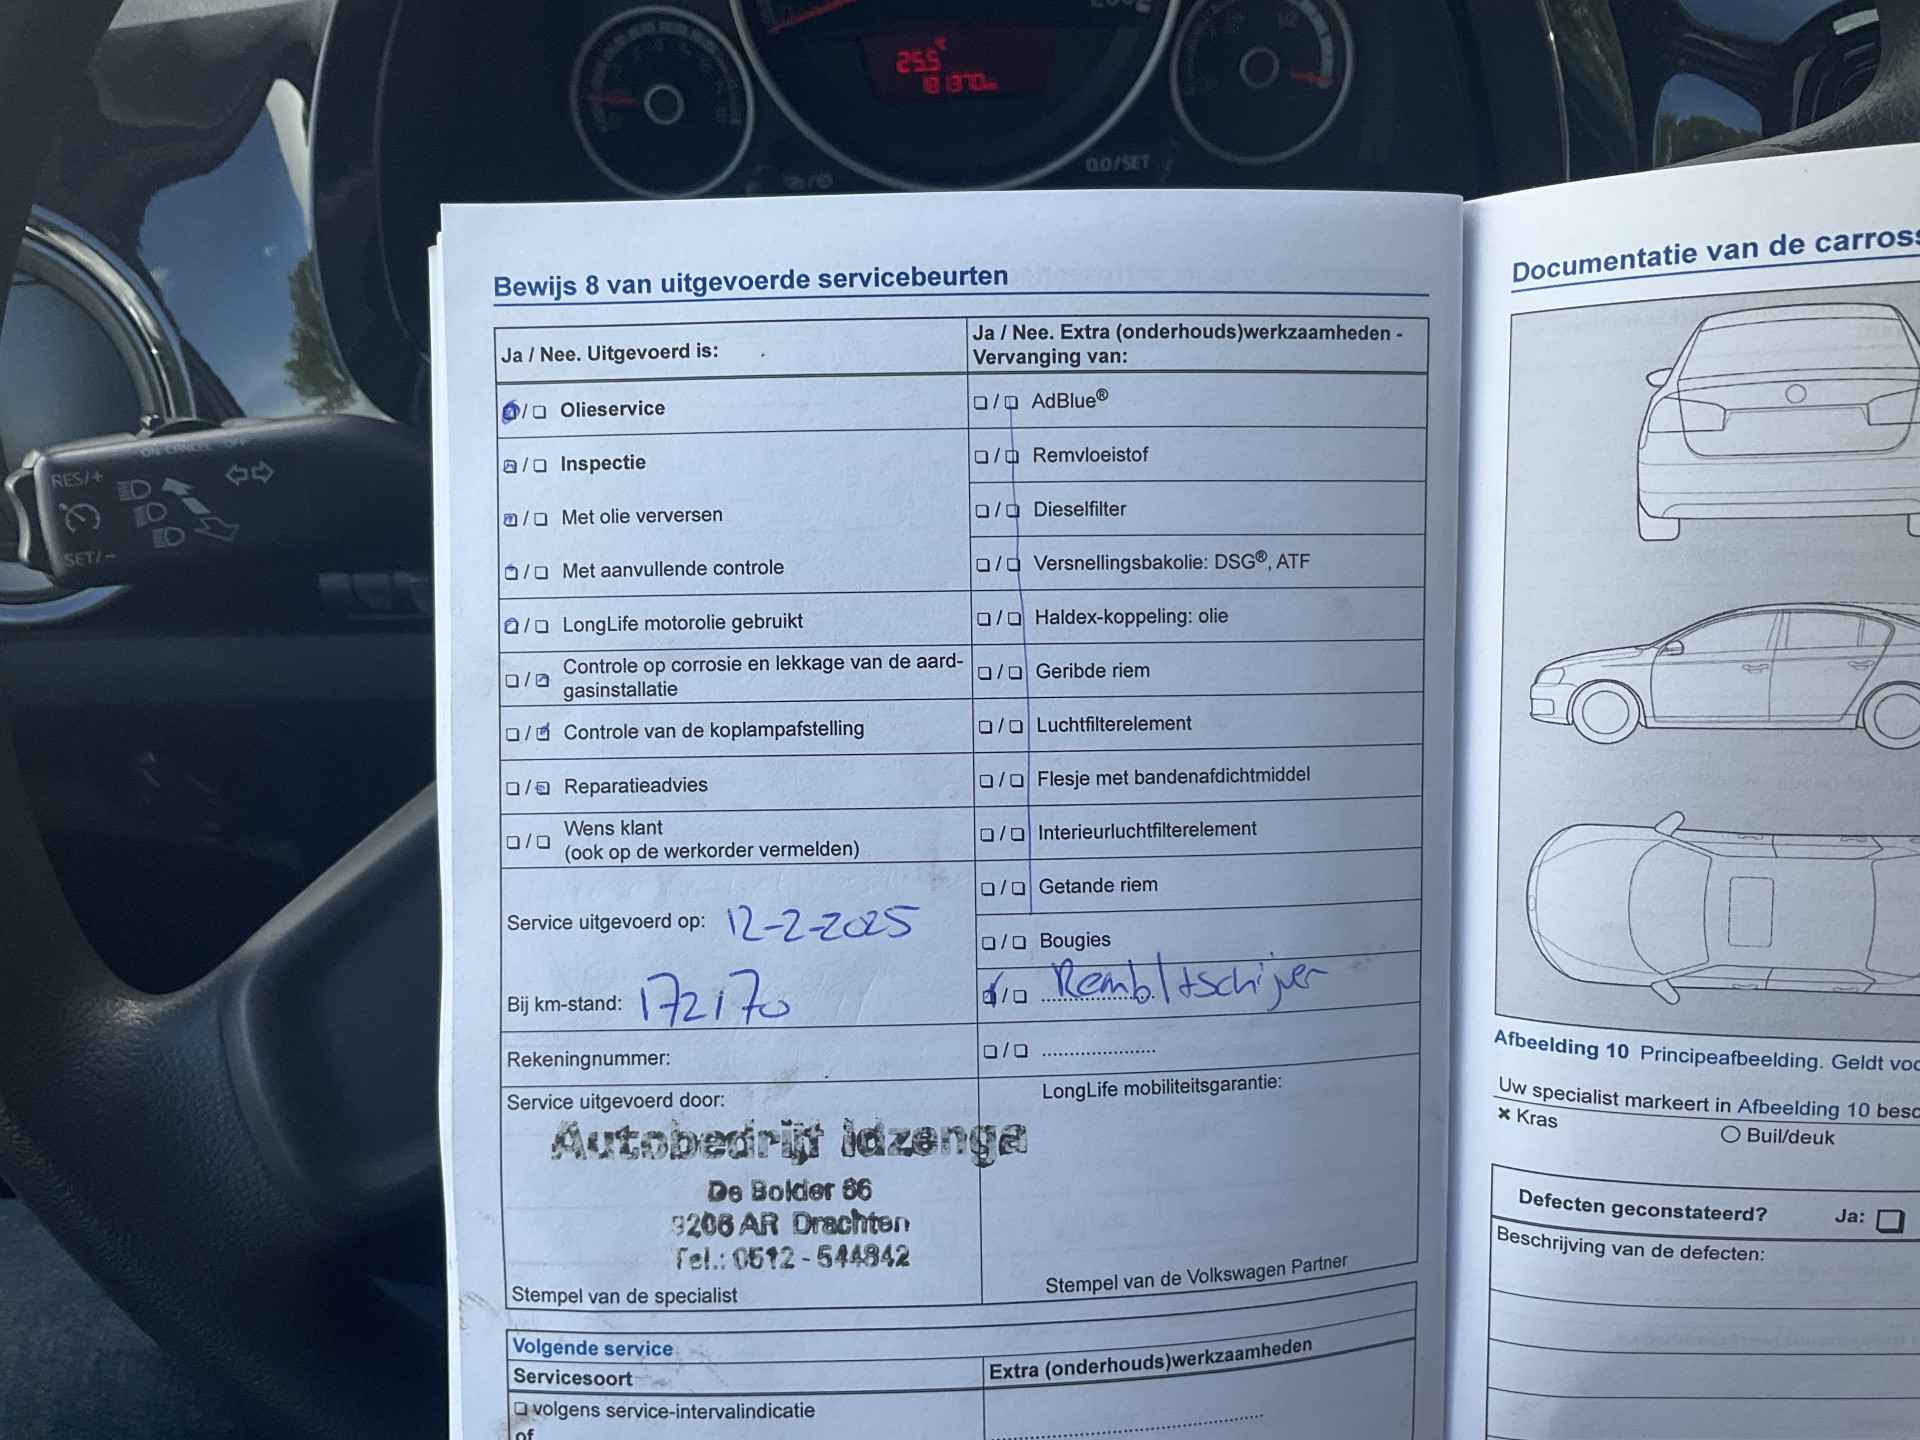 25.5°C
181370 km
0.0/SET
RES/+
ON CANCEL OFF
SET/-
Bewijs 8 van uitgevoerde servicebeurten
Ja / Nee. Uitgevoerd is:
Olieservice
Inspectie
Met olie verversen
Met aanvullende controle
LongLife motorolie gebruikt
Controle op corrosie en lekkage van de aard-
gasinstallatie
Controle van de koplampafstelling
Reparatieadvies
Wens klant
(ook op de werkorder vermelden)
Service uitgevoerd op: 12-2-2025
Bij km-stand: 172170
Rekeningnummer:
Service uitgevoerd door:
Autobedrijf Idzenga
De Bolder 66
9206 AR Drachten
Tel.: 0512 - 544842
Stempel van de specialist
Ja / Nee. Extra (onderhouds)werkzaamheden -
Vervanging van:
AdBlue®
Remvloeistof
Dieselfilter
Versnellingsbakolie: DSG®, ATF
Haldex-koppeling: olie
Geribde riem
Luchtfilterelement
Flesje met bandenafdichtmiddel
Interieurluchtfilterelement
Getande riem
Bougies
Rembl+schijven
LongLife mobiliteitsgarantie:
Stempel van de Volkswagen Partner
Volgende service
Servicesoort
Extra (onderhouds)werkzaamheden
volgens service-intervalindicatie
of
Documentatie van de carross
Afbeelding 10 Principeafbeelding. Geldt voo
Uw specialist markeert in Afbeelding 10 besc
× Kras
Buil/deuk
Defecten geconstateerd? Ja:
Beschrijving van de defecten: